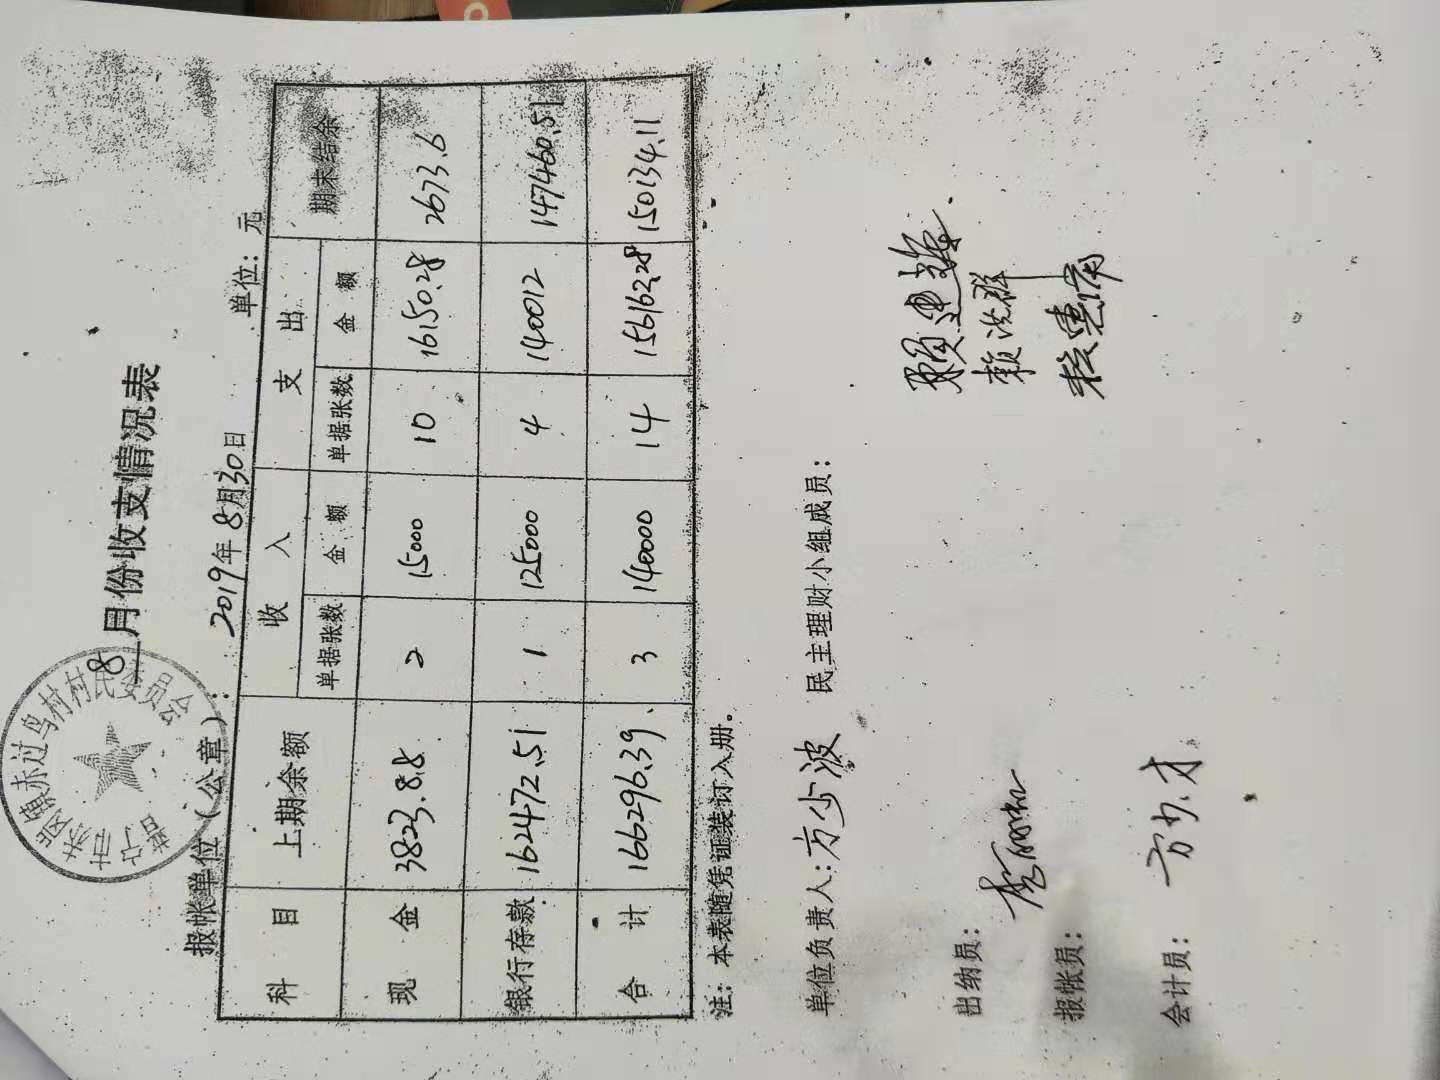 普宁市赤岗镇赤过鸟村村民委员会
8月份收支情况表
报帐单位（公章）： 2019年8月30日 单位：元
科目 上期余额 收入 支出 期末结余
单据张数 金额 单据张数 金额
现金 3823.88 2 15000 10 16150.28 2673.6
银行存款 162472.51 1 125000 4 140012 147460.51
合计 166296.39 3 140000 14 156162.28 150134.11
注：本表随凭证装订入册。
单位负责人：方少波 民主理财小组成员：
赖洪群
出纳员：
报帐员：
会计员：方少才